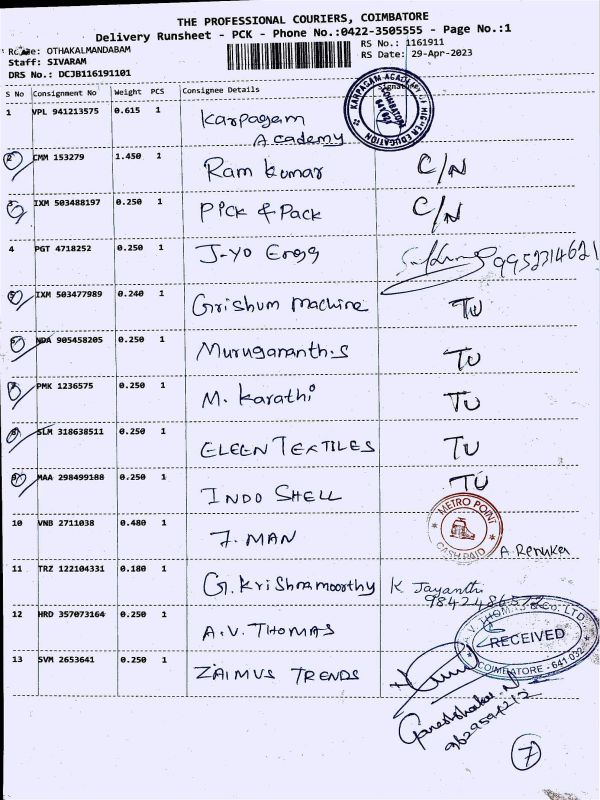 THE PROFESSIONAL COURIERS, COIMBATORE
Delivery Runsheet - PCK - Phone No.:0422-3505555 - Page No.:1
OTHAKALMANDABAM RS No.: 1161911
Staff: SIVARAM RS Date: 29-Apr-2023
DRS No.: DCJB116191101
S No Consignment No Weight PCS Consignee Details Signature
1 VPL 941213575 0.615 1 Karpagam Academy
KARPAGAM ACADEMY OF HIGHER EDUCATION
2 CMM 153279 1.450 1 Ram kumar C/N
3 IXM 503488197 0.250 1 Pick & Pack C/N
4 PGT 4718252 0.250 1 J-yo Engg 9952314621
5 IXM 503477989 0.240 1 Grishum machine TU
NDA 905458205 0.250 1 TU
PMK 1236575 0.250 1 M. karathi TU
8 SLM 318638511 0.250 1 ELEEN TEXTILES TU
9 MAA 298499188 0.250 1 INDO SHELL TU
METRO POINT
CASH PAID
10 VNB 2711038 0.480 1 7. MAN A Renuka
11 TRZ 122104331 0.180 1 G. Krishnamoorthy K Jayanthi
12 HRD 357073164 0.250 1 A.V. THOMAS
A.V. THOMAS & Co. LTD.
RECEIVED
COIMBATORE - 641 032
13 SVM 2653641 0.250 1 ZAIMUS TRENDS
7